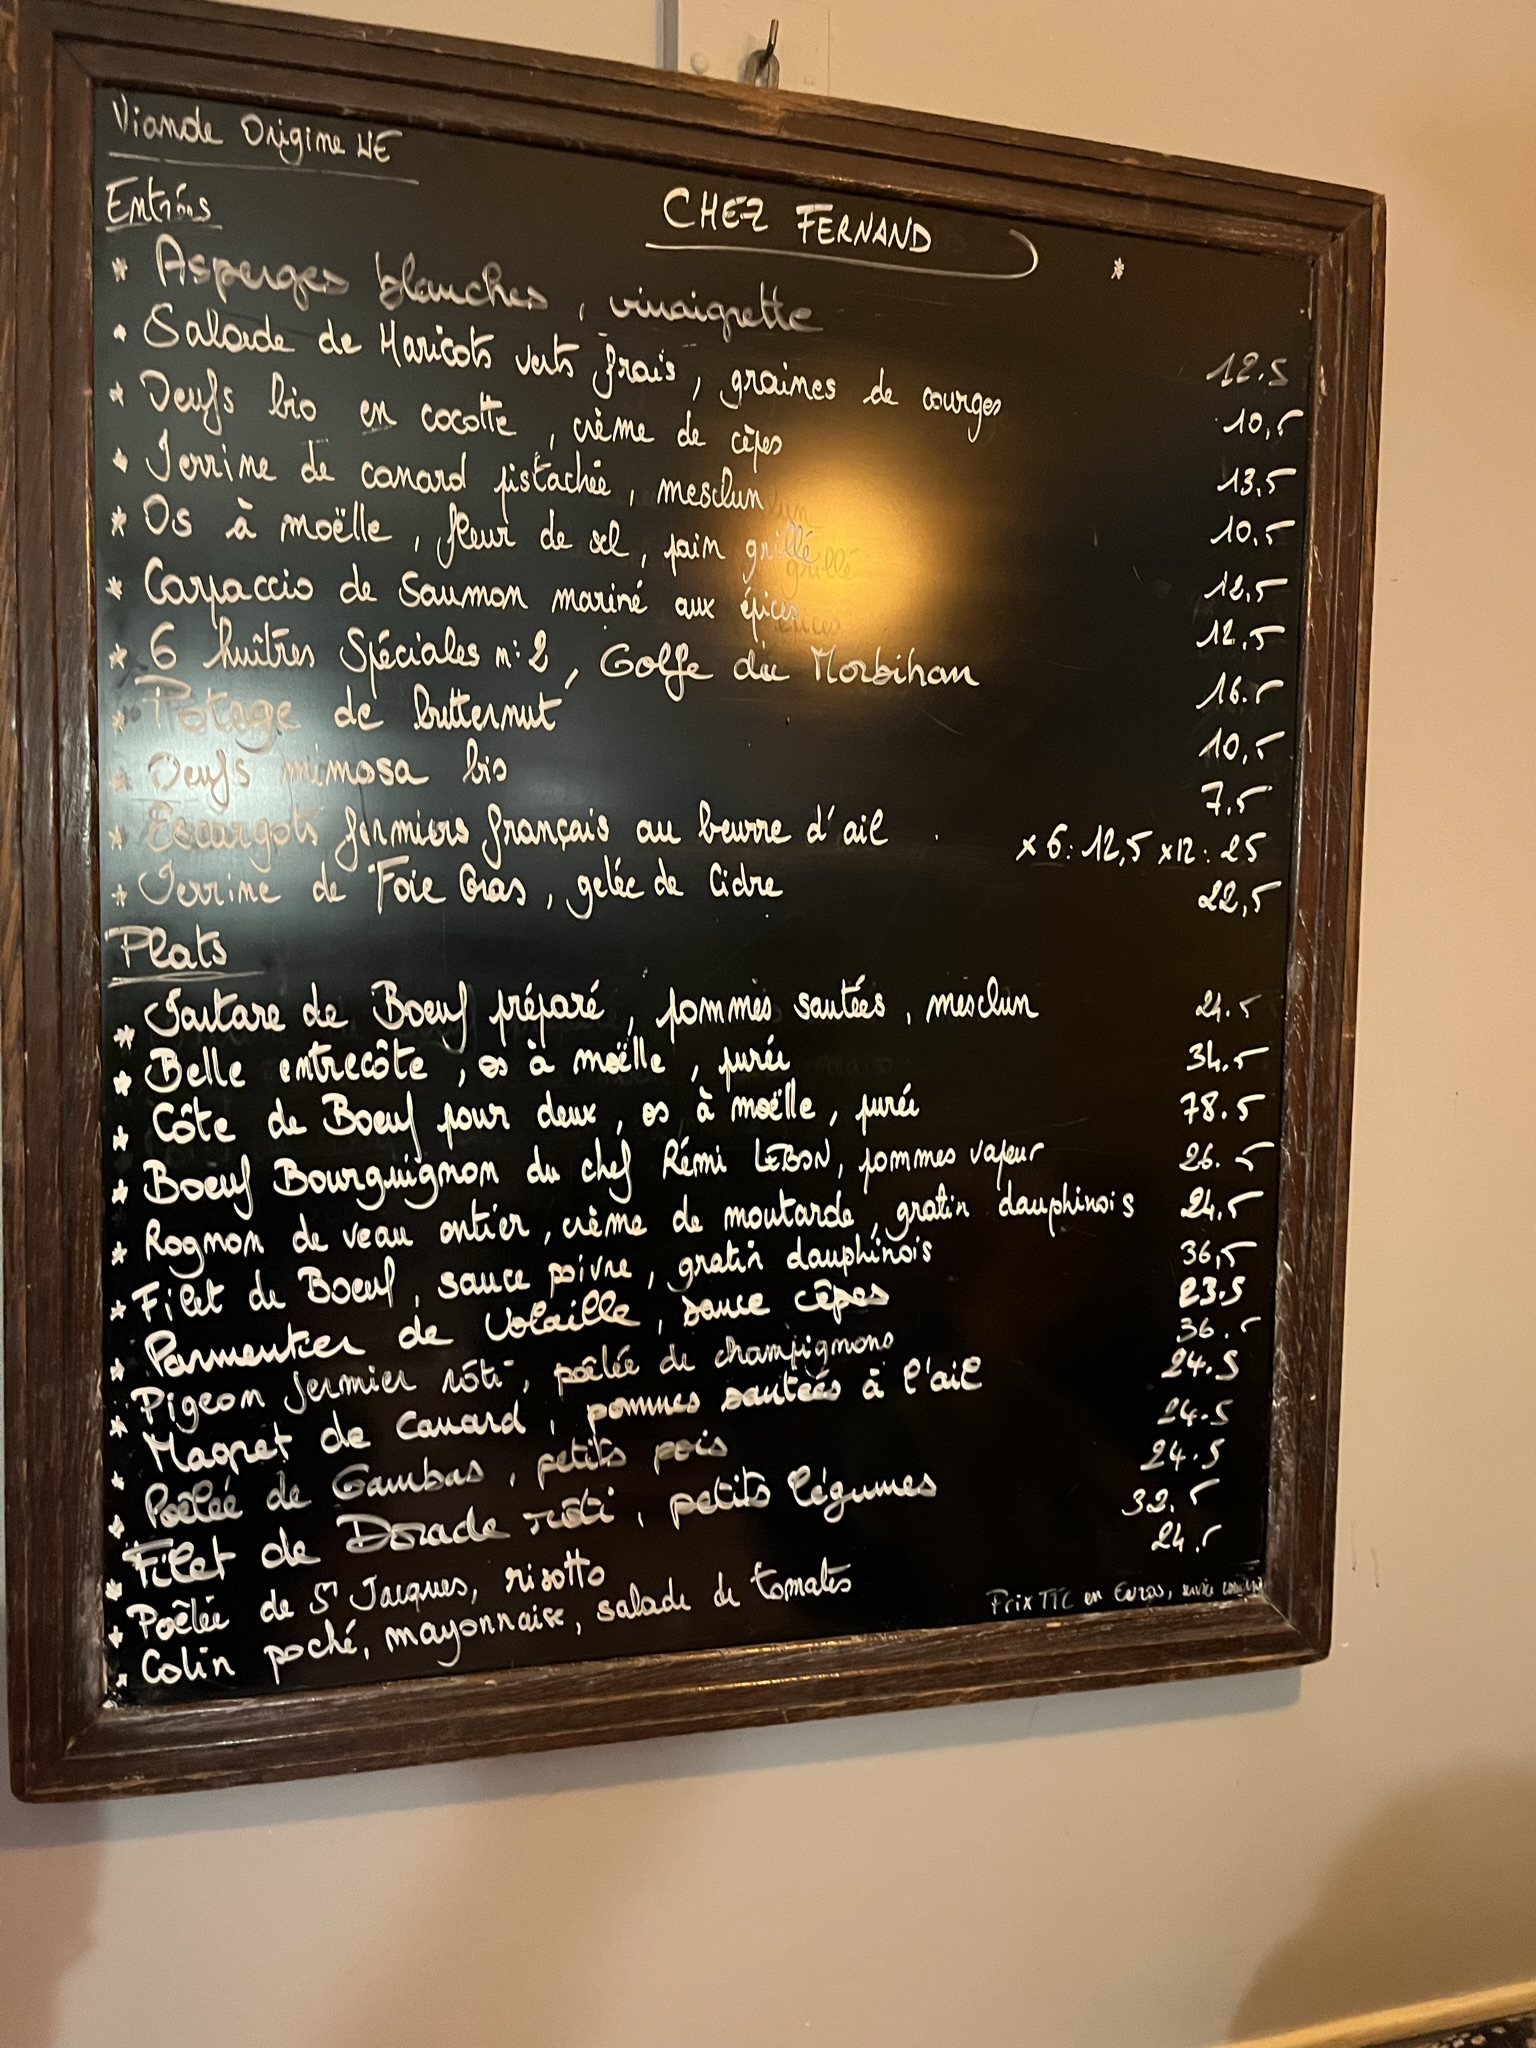 Viande Origine UE
CHEZ FERNAND
Entrées
* Asperges blanches, vinaigrette 12.5
* Salade de Haricots verts frais, graines de courges 10,5
* Oeufs bio en cocotte, crème de cèpes 13,5
* Terrine de canard pistachée, mesclun 10.5
* Os à moëlle, fleur de sel, pain grillé 12,5
* Carpaccio de Saumon mariné aux épices 12.5
* 6 huîtres Spéciales n:2, Golfe du Morbihan 16.5
* Potage de butternut 10,5
* Oeufs mimosa bio 7.5
* Escargots fermiers français au beurre d'ail x 6: 12,5 x12: 25
* Terrine de Foie Gras, gelée de Cidre 22,5
Plats
* Tartare de Boeuf préparé, pommes sautées, mesclun 24.5
* Belle entrecôte, os à moëlle, purée 34.5
* Côte de Boeuf pour deux, os à moëlle, purée 78.5
* Boeuf Bourguignon du chef Rémi LEBON, pommes vapeur 26.5
* Rognon de veau entier, crème de moutarde, gratin dauphinois 24,5
* Filet de Boeuf, sauce poivre, gratin dauphinois 36,5
* Parmentier de Volaille, sauce cêpes 23.5
* Pigeon fermier rôti, poêlée de champignons 36.5
* Magret de Canard, pommes sautées à l'ail 24.5
* Poêlée de Gambas, petits pois 24.5
* Filet de Dorade rôti, petits légumes 24.5
* Poêlée de St Jacques, risotto 32.5
* Colin poché, mayonnaise, salade de tomates 24.5
Prix TTC en Euros, service